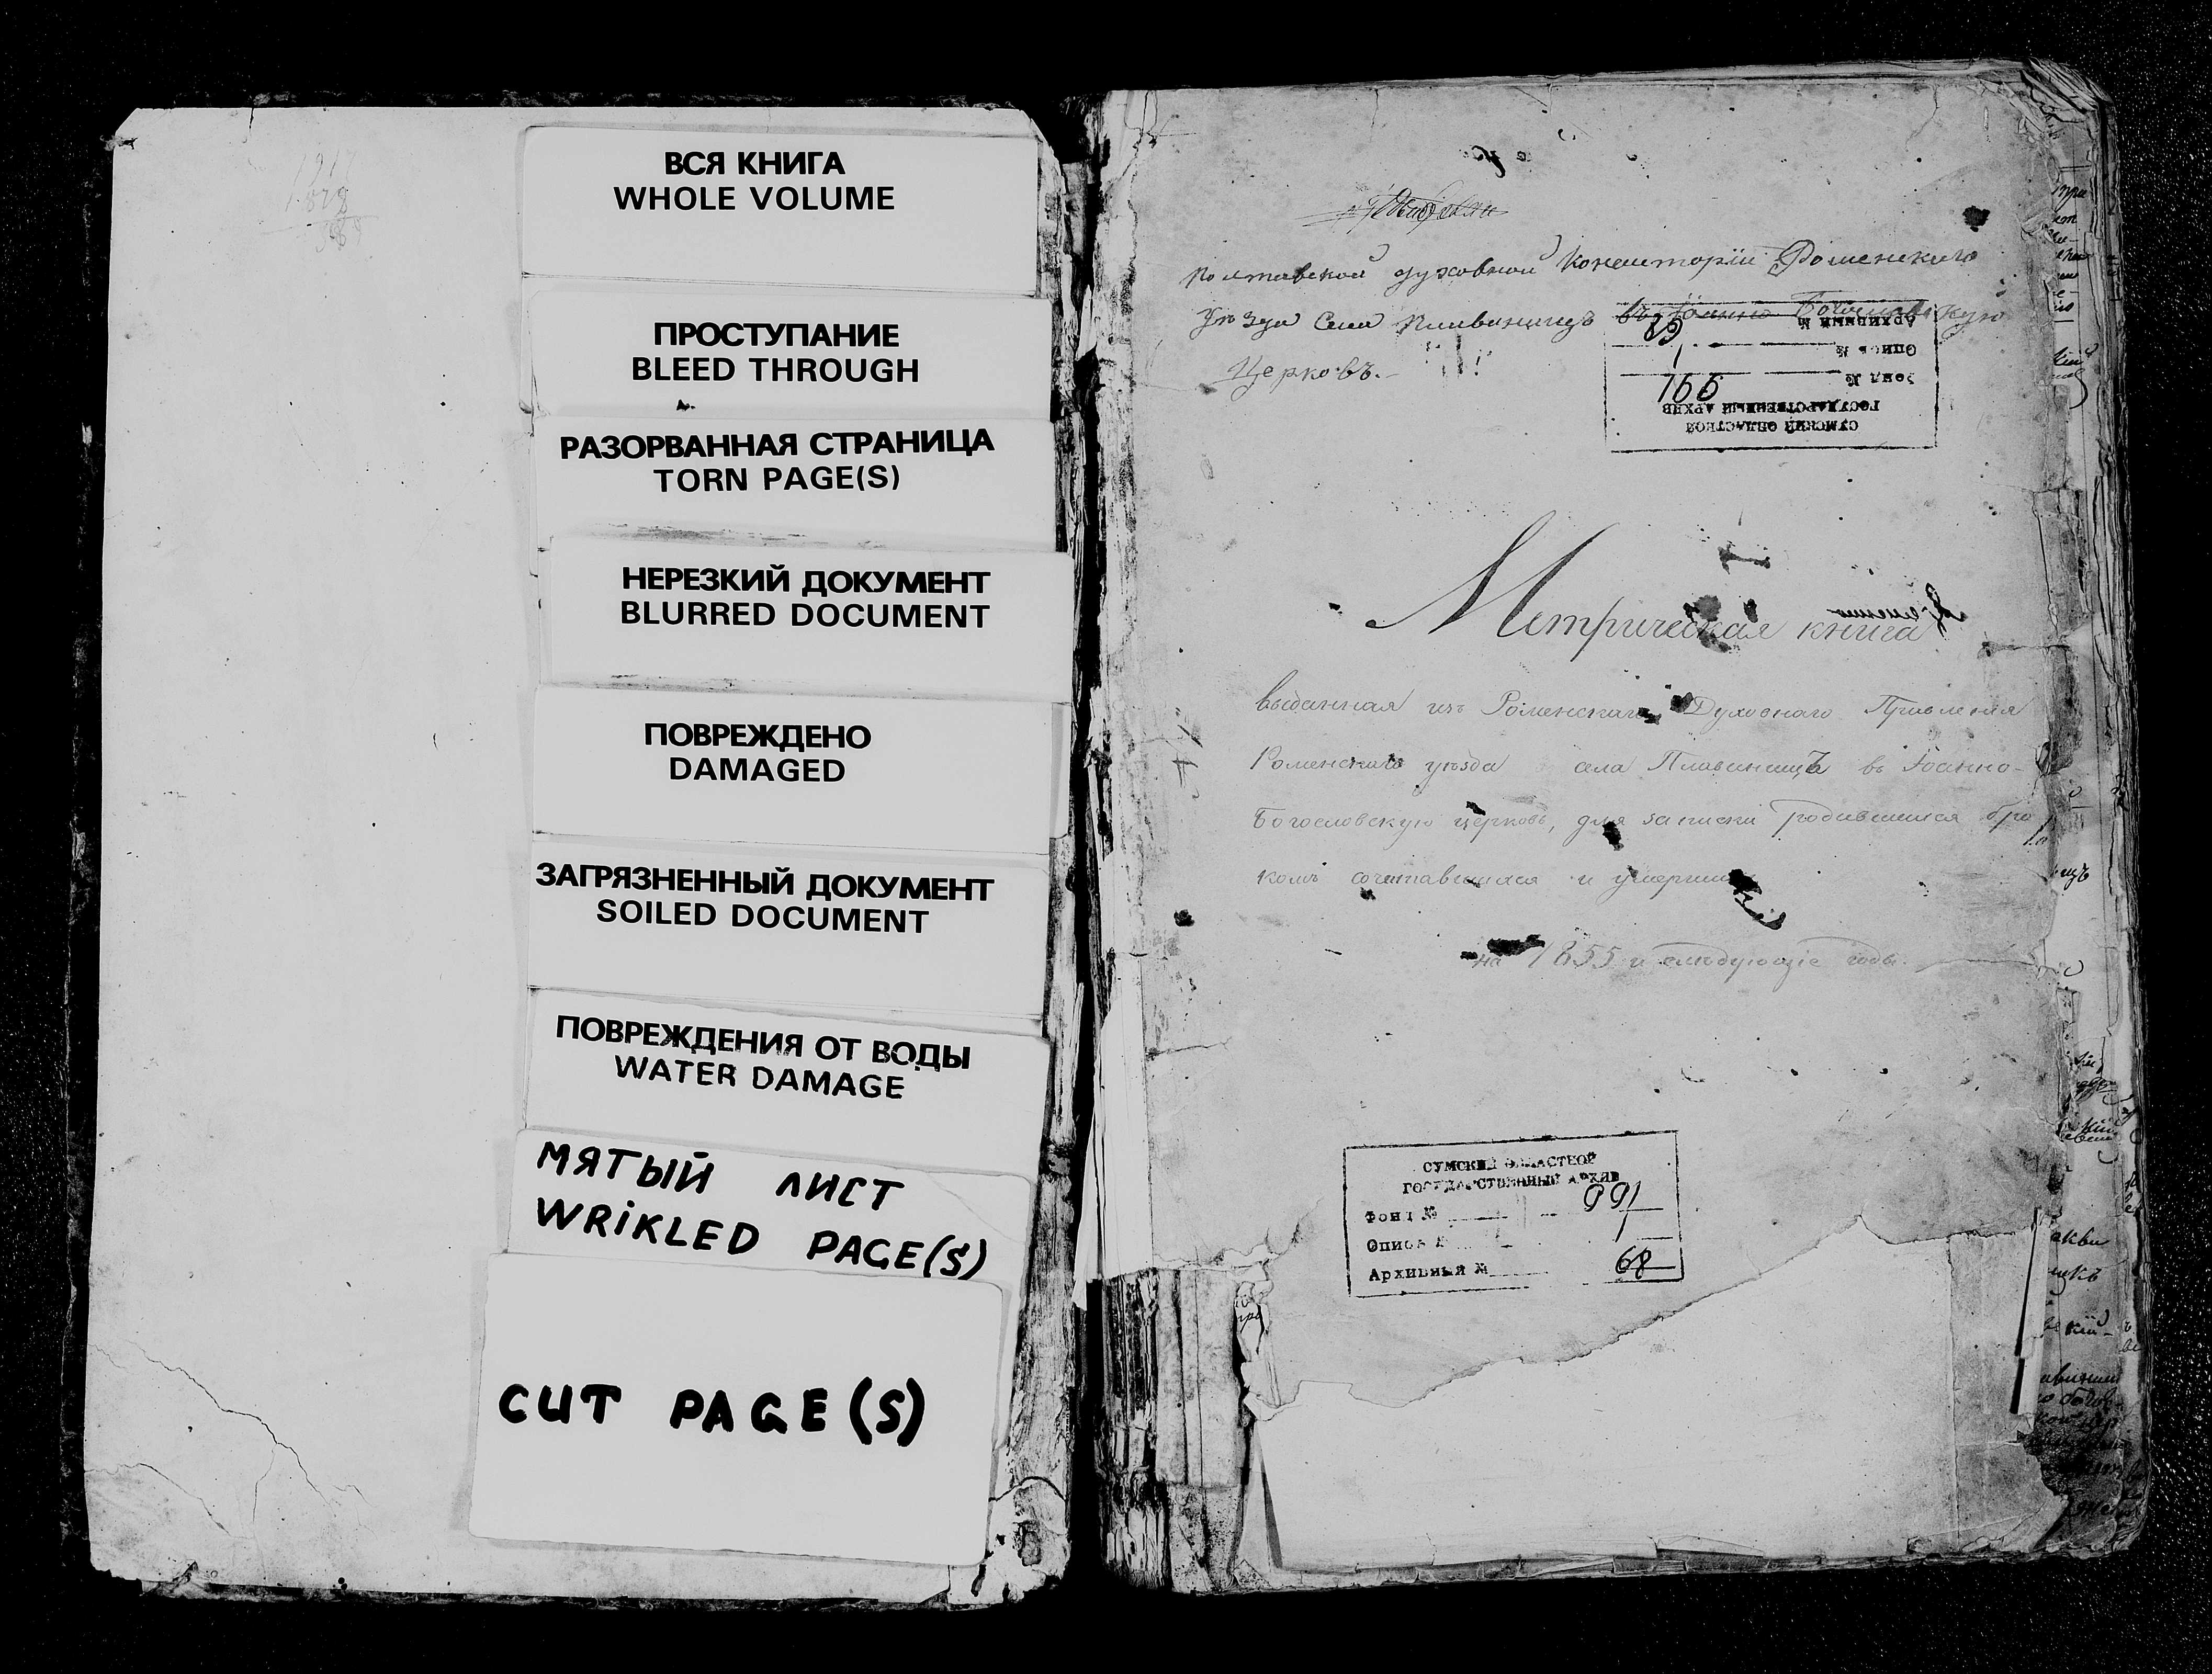 1917
1828
ВСЯ КНИГА
WHOLE VOLUME
ПРОСТУПАНИЕ
BLEED THROUGH
РАЗОРВАННАЯ СТРАНИЦА
TORN PAGE(S)
НЕРЕЗКИЙ ДОКУМЕНТ
BLURRED DOCUMENT
ПОВРЕЖДЕНО
DAMAGED
ЗАГРЯЗНЕННЫЙ ДОКУМЕНТ
SOILED DOCUMENT
ПОВРЕЖДЕНИЯ ОТ ВОДЫ
WATER DAMAGE
МЯТЫЙ ЛИСТ
WRiKLED PAGE(S)
CUT PAGE(S)
Полтавской духовной Консисторіи Роменскаго
Уѣзда Села Плавинищъ въ Іоанно Богословскую
Церковь.
СУМСКИЙ ОБЛАСТНОЙ
ГОСУДАРСТВЕННЫЙ АРХИВ
Фонд № 166
Опись № 1
Архивный №
Метрическая книга
выданная изъ Роменскаго Духовнаго Правленія
Роменскаго уѣзда села Плавинищъ въ Іоанно-
Богословскую церковь, для записки родившихся бра
комъ сочетавшихся и умершихъ
на 1855 и слѣдующіе годы.
СУМСКИЙ ОБЛАСТНОЙ
ГОСУДАРСТВЕННЫЙ АРХИВ
Фонд № 991
Опись № 1
Архивный № 68